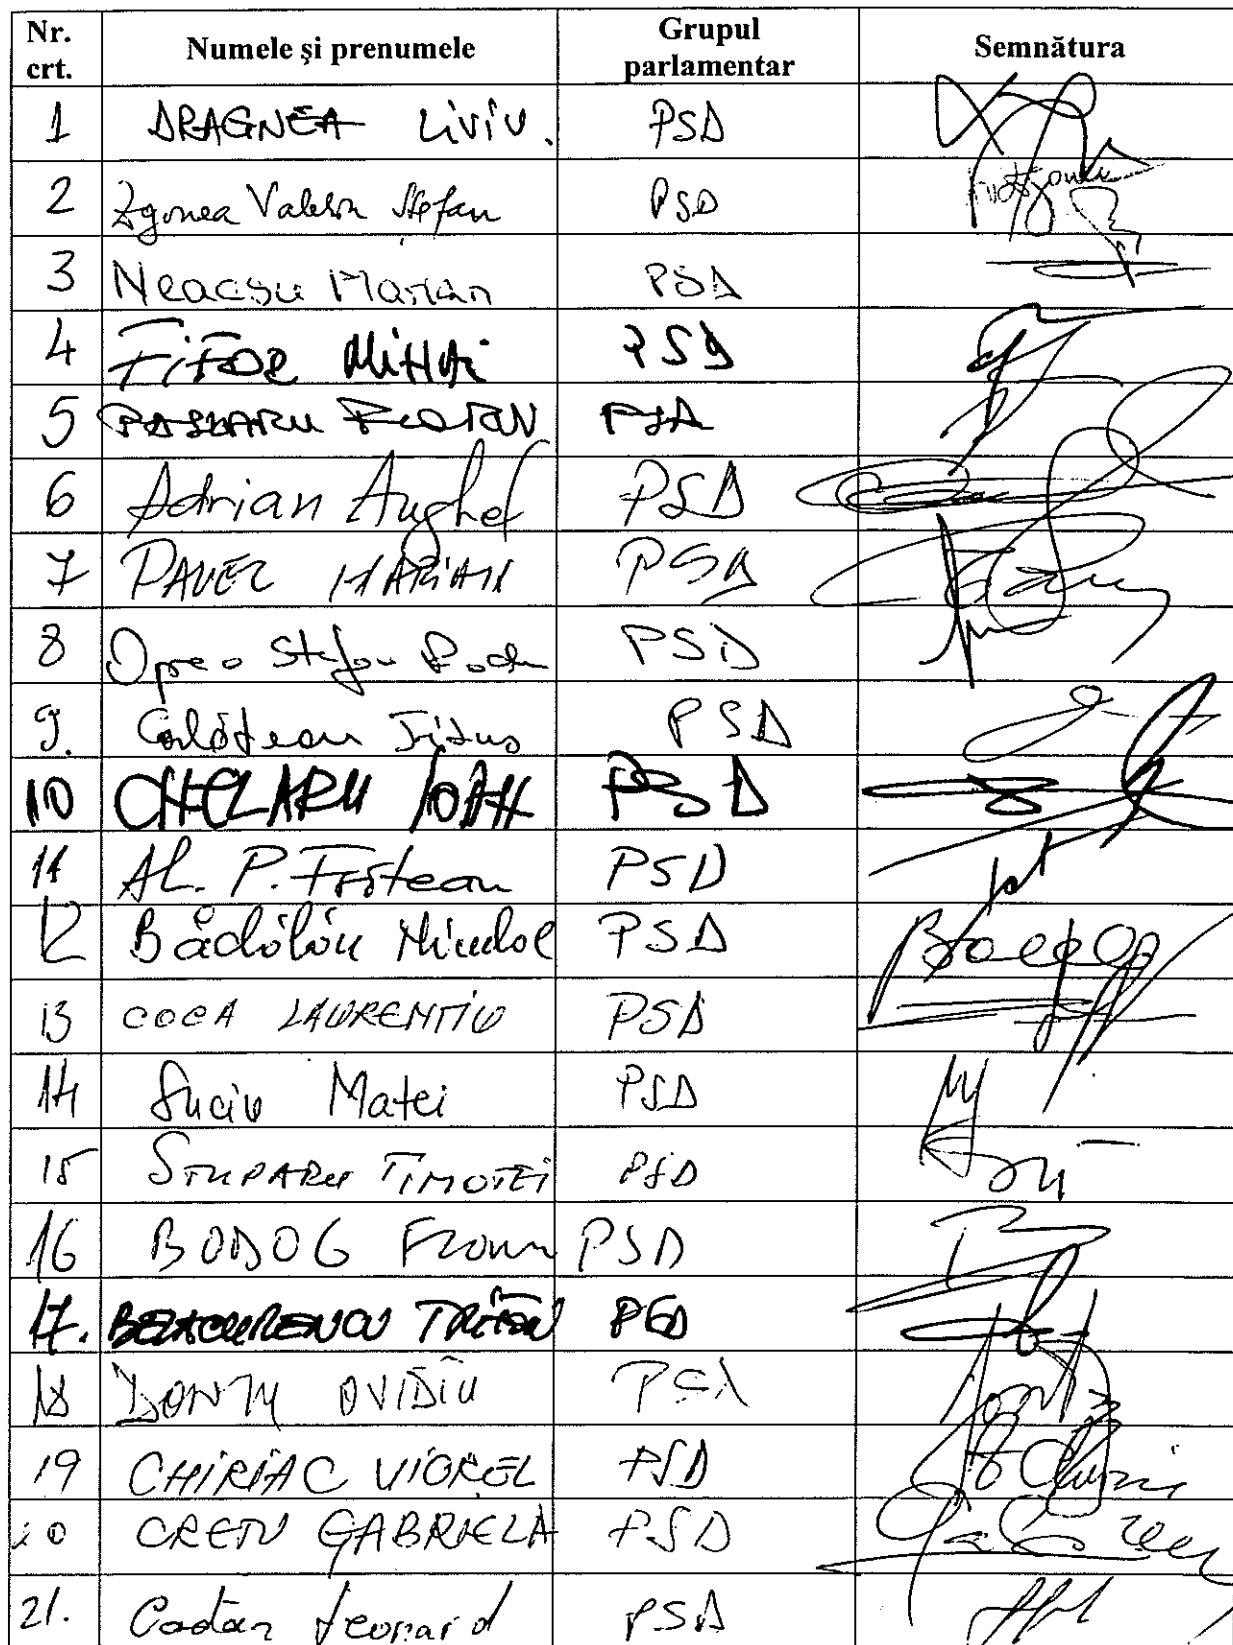 Nr. crt. Numele și prenumele Grupul parlamentar Semnătura
1 DRAGNEA LIVIU. PSD
2 Zgonea Valeriu Ștefan PSD
3 Neacșu Marian PSD
4 FIFOR MIHAI PSD
5 PÂSLARU FLORIN PSD
6 Adrian Anghel PSD
7 PAVEL MARIAN PSD
8 Oprea Stefan Radu PSD
9. Corlățean Titus PSD
10 CHELARU IOAN PSD
11 AL. P. Frăteanu PSD
12 Bădălău Niculae PSD
13 COCA LAURENȚIU PSD
14 Suciu Matei PSD
15 STUPARU TIMOTEI PSD
16 BODOG Florian PSD
17. PSD
18 DONȚU OVIDIU PSD
19 CHIRIAC VIOREL PSD
20 CREȚU GABRIELA PSD
21. Cadăr Leonard PSD